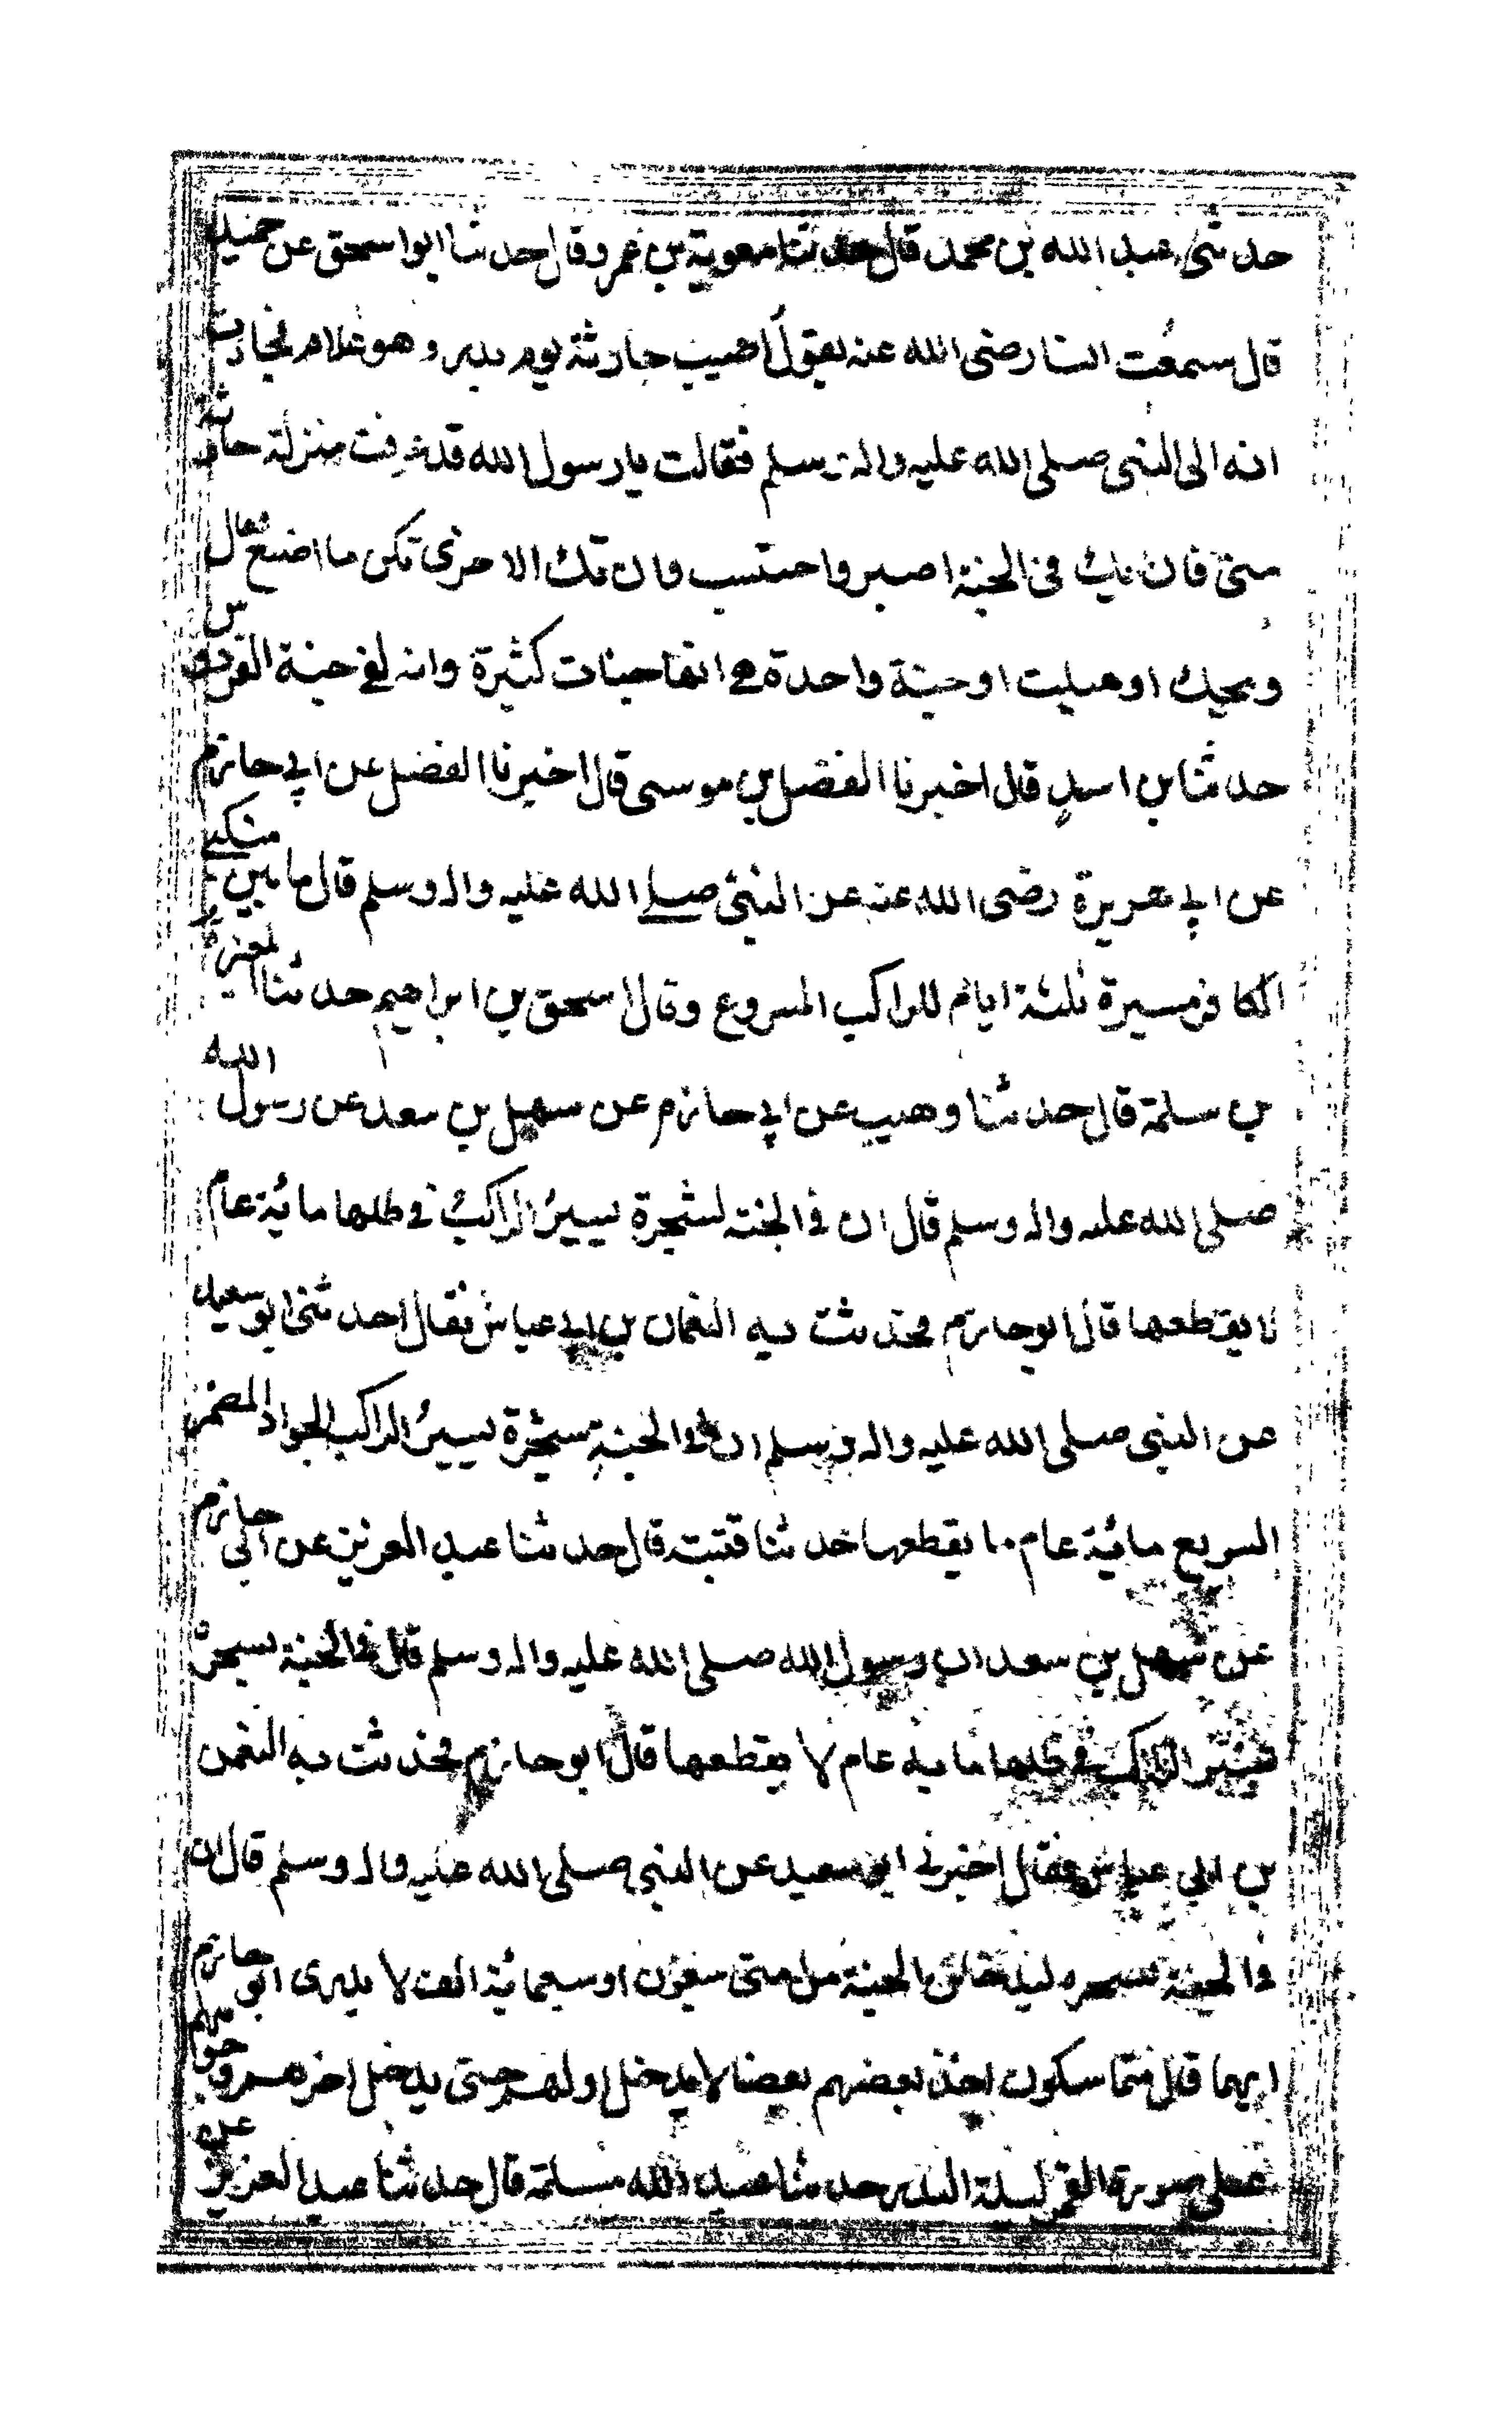 حدثنى عبد الله بن محمد قال حدثنا معوية بن عمرو قال حدثنا ابوا سحق عن حميد
قال سمعت انسا رضى الله عنه يقول اصيب حارثة يوم بدر وهو غلام فجاءت
انه الى النبى صلى الله عليه واله وسلم فقالت يا رسول الله قد عرفت منزلة حارثة
منى فان يك فى الجنة اصبر واحتسب وان تك الاخرى تكن ما اصنع فقال
ويحك اوهبلت اوجنة واحدة هى انها جنات كثيرة وانه لفى جنة الفردوس
حدثنا بن اسد قال اخبرنا الفضل بن موسى قال اخبرنا الفضل عن ابى حازم
عن ابى هريرة رضى الله عنه عن النبى صلى الله عليه واله وسلم قال ما بين منكبى
الكافر مسيرة ثلثة ايام للراكب المسروع وقال اسحق بن ابراهيم حدثنا المغيرة
بن سلمة قال حدثنا وهيب عن ابى حازم عن سهل بن سعد عن رسول الله
صلى الله عليه واله وسلم قال ان فى الجنة لشجرة يسير الراكب فى ظلها مائة عام
لا يقطعها قال ابو حازم فحدثت به النعمان بن ابى عياش فقال حدثنى ابو سعيد
عن النبى صلى الله عليه واله وسلم ان فى الجنة شجرة يسير الراكب الجواد المضمر
السريع مائة عام ما يقطعها حدثنا قتيبة قال حدثنا عبد العزيز عن ابى حازم
عن سهل بن سعد ان رسول الله صلى الله عليه واله وسلم قال فى الجنة شجرة
يسير الراكب فى ظلها ماية عام لا يقطعها قال ابو حازم فحدثت به النعمن
بن ابى عياش فقال اخبرنى ابو سعيد عن النبى صلى الله عليه واله وسلم قال ان
فى الجنة شجرة ليدخلن الجنة من متى سبعون او سبعمائة الف لا يدرى ابو حازم
ايهما قال متماسكون اخذ بعضهم بعضا لا يدخل اولهم حتى يدخل اخرهم وجوههم
على صورة القمر ليلة البدر حدثنا عبد الله مسلمة قال حدثنا عبد العزيز عن